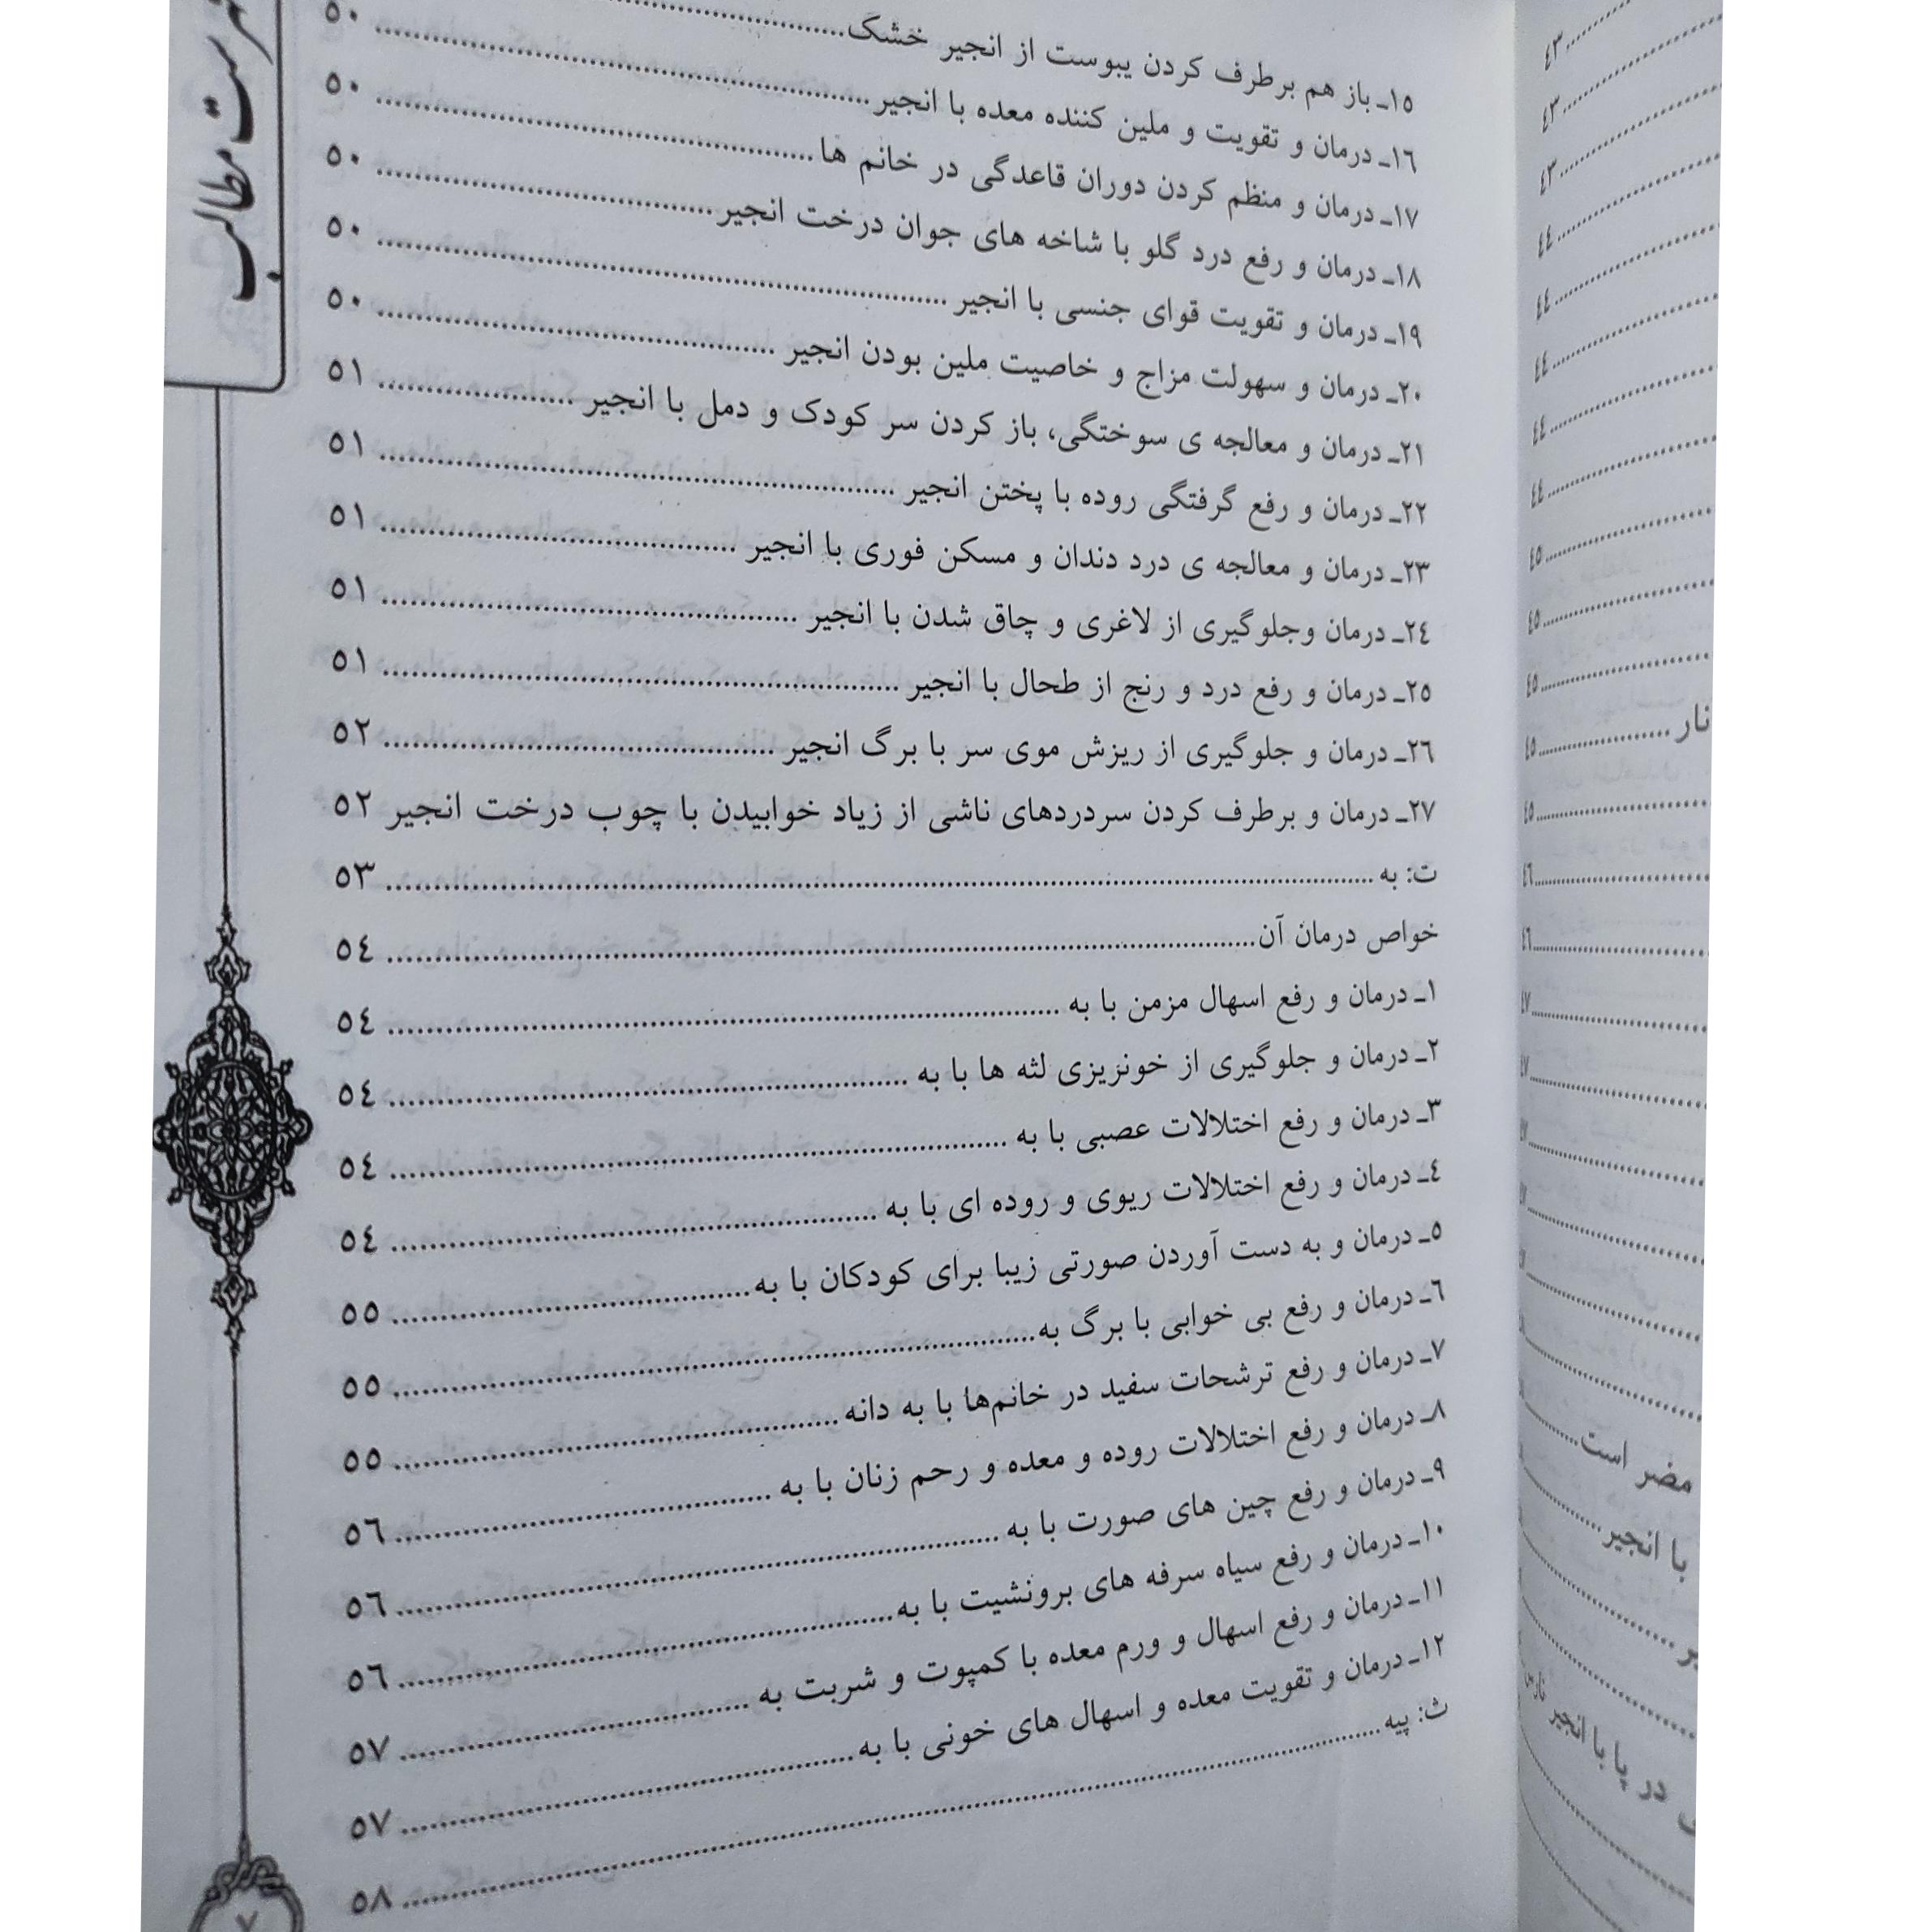 فهرست مطالب
۱٥ـ باز هم برطرف کردن یبوست از انجیر خشک
۱٦ـ درمان و تقویت و ملین کننده معده با انجیر ٥۰
۱۷ـ درمان و منظم کردن دوران قاعدگی در خانم ها ٥۰
۱۸ـ درمان و رفع درد گلو با شاخه های جوان درخت انجیر ٥۰
۱۹ـ درمان و تقویت قوای جنسی با انجیر ٥۰
۲۰ـ درمان و سهولت مزاج و خاصیت ملین بودن انجیر ٥۰
۲۱ـ درمان و معالجه ی سوختگی، باز کردن سر کودک و دمل با انجیر ٥۱
۲۲ـ درمان و رفع گرفتگی روده با پختن انجیر ٥۱
۲۳ـ درمان و معالجه ی درد دندان و مسکن فوری با انجیر ٥۱
۲٤ـ درمان وجلوگیری از لاغری و چاق شدن با انجیر ٥۱
۲٥ـ درمان و رفع درد و رنج از طحال با انجیر ٥۱
۲٦ـ درمان و جلوگیری از ریزش موی سر با برگ انجیر ٥۲
۲۷ـ درمان و برطرف کردن سردردهای ناشی از زیاد خوابیدن با چوب درخت انجیر ٥۲
ت: به ٥۳
خواص درمان آن ٥٤
۱ـ درمان و رفع اسهال مزمن با به ٥٤
۲ـ درمان و جلوگیری از خونریزی لثه ها با به ٥٤
۳ـ درمان و رفع اختلالات عصبی با به ٥٤
٤ـ درمان و رفع اختلالات ریوی و روده ای با به ٥٤
٥ـ درمان و به دست آوردن صورتی زیبا برای کودکان با به ٥٥
٦ـ درمان و رفع بی خوابی با برگ به ٥٥
۷ـ درمان و رفع ترشحات سفید در خانم‌ها با به دانه ٥٥
۸ـ درمان و رفع اختلالات روده و معده و رحم زنان با به ٥٦
۹ـ درمان و رفع چین های صورت با به ٥٦
۱۰ـ درمان و رفع سیاه سرفه های برونشیت با به ٥٦
۱۱ـ درمان و رفع اسهال و ورم معده با کمپوت و شربت به ٥۷
۱۲ـ درمان و تقویت معده و اسهال های خونی با به ٥۷
ث: پیه ٥۸
۷